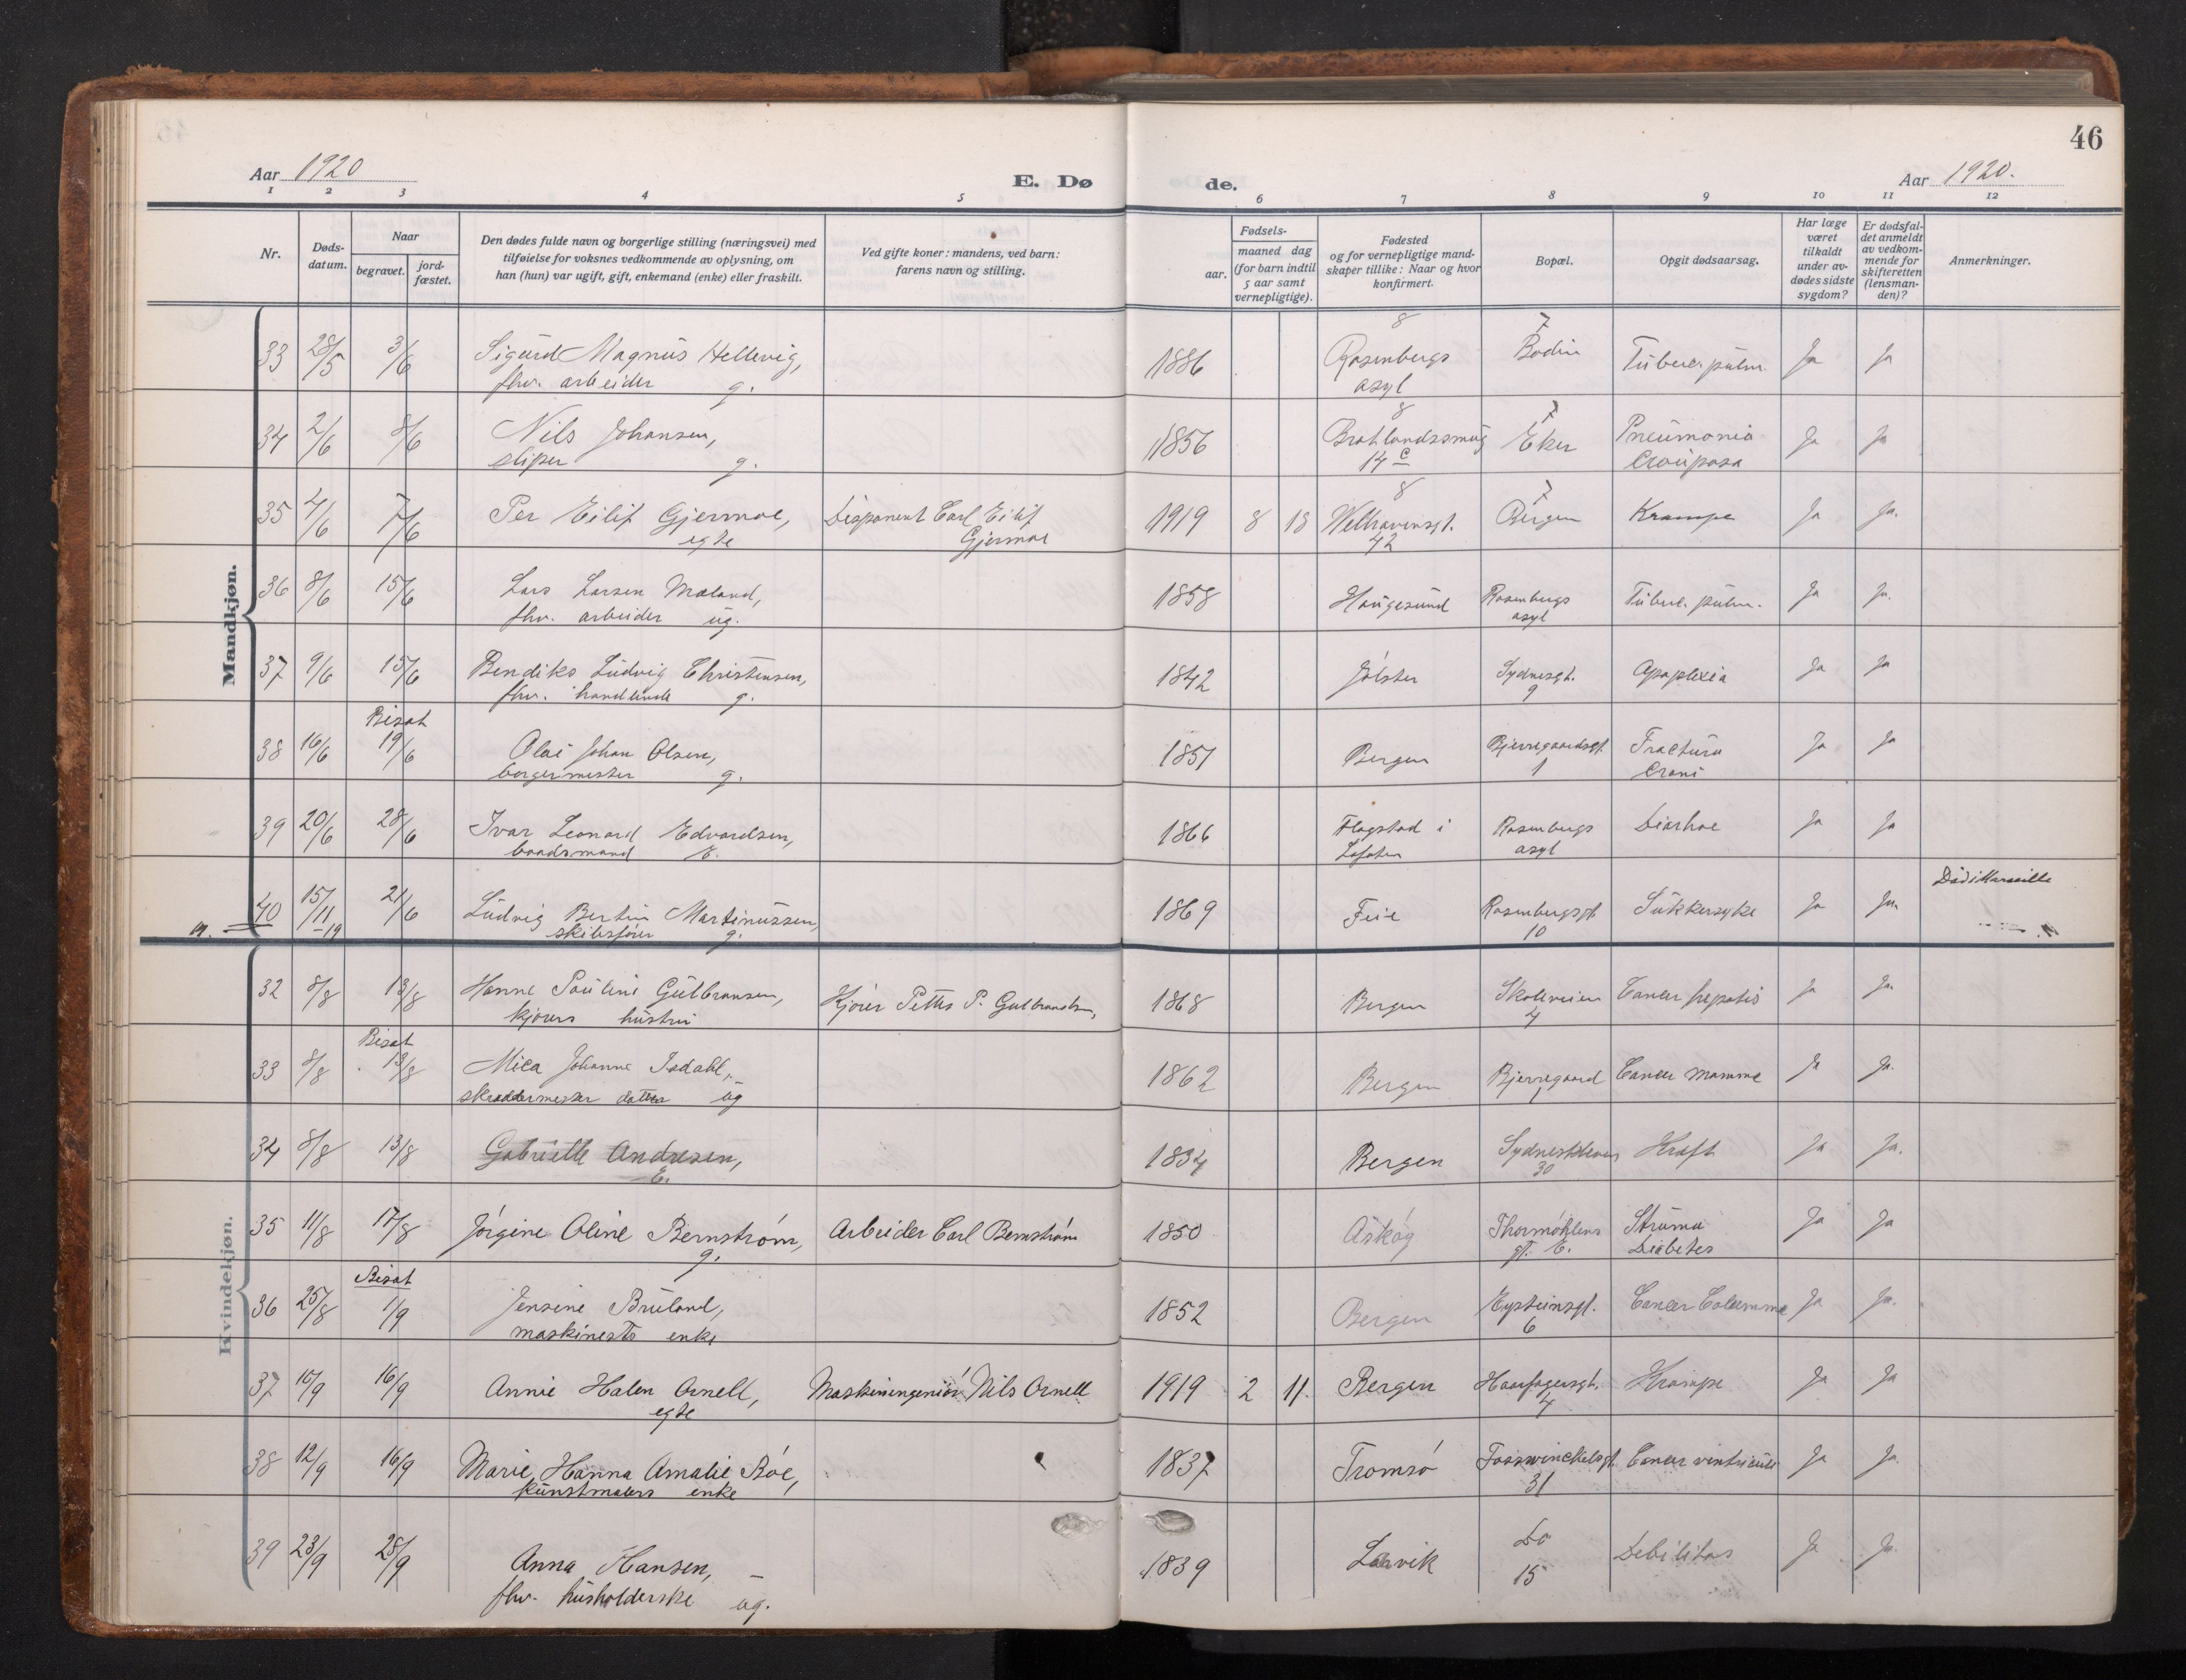 46
Aar 1920
E. Dø
de.
Aar 1920.
1 2 3 4 5 6 7 8 9 10 11 12
Nr.
Døds-
datum.
Naar
begravet.
jord-
fæstet.
Den dødes fulde navn og borgerlige stilling (næringsvei) med
tilføielse for voksnes vedkommende av oplysning, om
han (hun) var ugift, gift, enkemand (enke) eller fraskilt.
Ved gifte koner: mandens, ved barn:
farens navn og stilling.
Fødsels-
aar.
maaned dag
(for barn indtil
5 aar samt
vernepligtige).
Fødested
og for vernepligtige mand-
skaper tillike: Naar og hvor
konfirmert.
Bopæl.
Opgit dødsaarsag.
Har læge
været
tilkaldt
under av-
dødes sidste
sygdom?
Er dødsfal-
det anmeldt
av vedkom-
mende for
skifteretten
(lensman-
den)?
Anmerkninger.
Mandkjøn.
8 7
33 28/5 3/6 Sigurd Magnus Hellevig, 1886 Rosenbergs Bodin Tuberc. pulm. Ja Ja
fhv. arbeider g. asyl
8 7
34 2/6 8/6 Nils Johansen, 1856 Eker Pneumonia Ja Ja
sliper g. 14 c Crouposa
8 7
35 4/6 7/6 Per Eilif Gjermoe, Disponent Carl Eilif 1919 8 18 Welhavensgt. Bergen Krampe Ja Ja.
egte Gjermoe 42
36 8/6 15/6 Lars Larsen Mæland, 1858 Haugesund Rosenbergs Tuberc. pulm. Ja Ja.
fhv. arbeider ug. asyl
37 9/6 15/6 Bendiks Ludvig Christensen, 1842 Jølster Sydnesgt. Apoplexia Ja Ja
fhv. handlende g. 9
Bisat
38 16/6 19/6 Olai Johan Olsen, 1851 Bergen Bjerregaardsgt. Fractura Ja Ja
borgermester g. 1 Crani
39 20/6 28/6 Ivar Leonard Edvardsen, 1866 Flagstad i Rosenbergs Diarhoe Ja Ja
baadsmand E. Lofoten asyl
Död i Marseille
40 15/11 19 21/6 Ludvig Bertin Martinussen, 1869 Feie Rosenbergsgt. Sukkersyke Ja Ja
skibsfører g. 10
Kvindekjøn.
32 8/8 13/8 Hanne Pauline Gulbransen, Kjører Petter P. Gulbrandsen, 1868 Bergen Skoleveien Cancer hepatis Ja Ja.
kjørers hustru 4
Bisat
33 8/8 13/8 Mica Johanne Isdahl, 1862 Bergen Bjerregaard Cancer Mamme Ja Ja.
skræddermester datter ug 1
34 8/8 13/8 Gabrielle Andresen, 1834 Bergen Sydneskleven Kræft Ja Ja.
E. 30
35 11/8 17/8 Jørgine Oline Bernstrøm, Arbeider Carl Bernstrøm 1850 Askøy Thormøhlens Struma Ja Ja
g. gt. 6. Diabetes
Bisat
36 25/8 1/9 Jensine Bruland, 1852 Bergen Eysteinsgt. Cancer Ja Ja.
maskinists enke 6
37 10/9 16/9 Annie Halen Ornell, Maskiningeniør Nils Ornell 1919 2 11. Bergen Haarfagersgt. Krampe Ja Ja
egte 4
38 12/9 16/9 Marie, Hanna Amalie Bøe, 1837 Tromsø Fosswinckelsgt. Cancer ventricule Ja Ja.
kunstmalers enke 31
39 23/9 28/9 Anna Hansen, 1839 Larvik Do Debilitas Ja Ja.
fhv. husholderske ug. 15